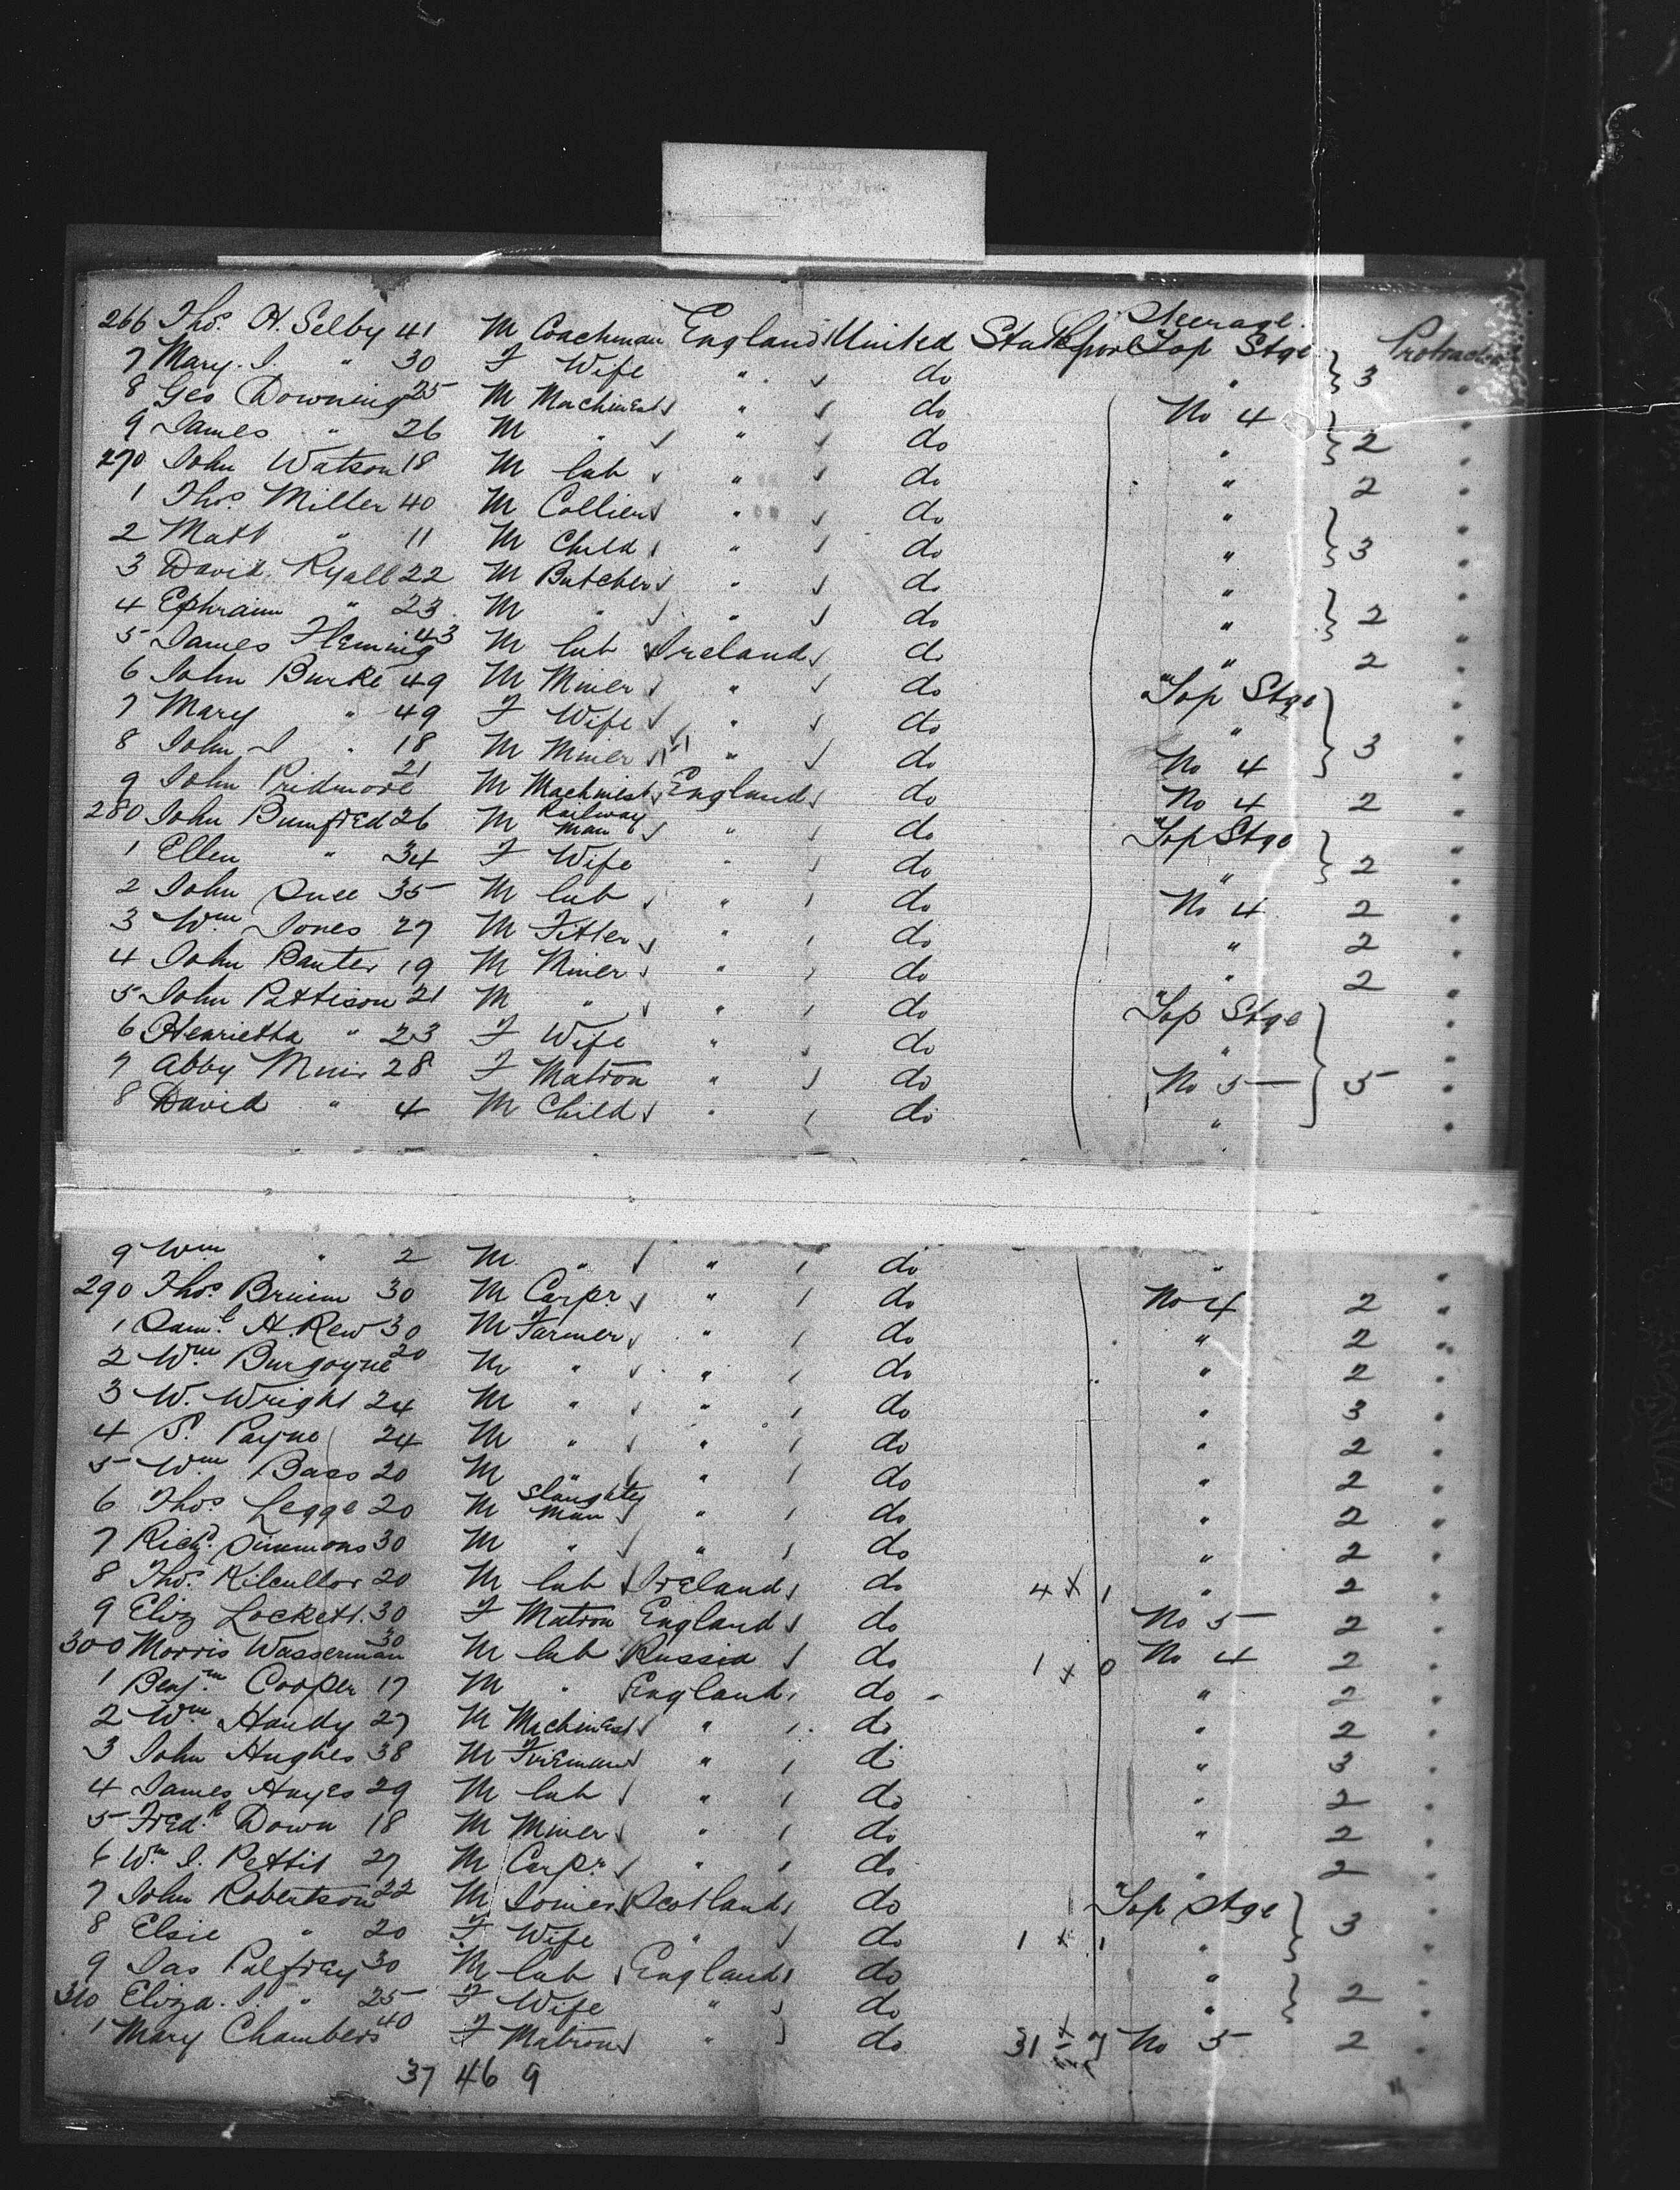 Steerage
266 Thos. H. Selby 41 M Coachman England United States Top Stge Protracted
7 Mary. J. " 30 F Wife " do " } 3 "
8 Geo Downing 25 M Machinist " do No 4 "
9 James " 26 M " " do " } 2 "
270 John Watson 18 M lab " do " 2 "
1 Thos. Miller 40 M Collier " do " "
2 Matt " 11 M Child " do " } 3 "
3 David Ryall 22 M Butcher " do " "
4 Ephraim " 23 M " " do " } 2 "
5 James Fleming 43 M lab Ireland do " 2 "
6 John Burke 49 M Miner " do Top Stge "
7 Mary " 49 F Wife " do " "
8 John J " 18 M Miner " do No 4 } 3 "
9 John Pridmore 21 M Machinist England do No 4 2 "
280 John Bumfred 26 M Railway Man " do Top Stge "
1 Ellen " 34 F Wife " do " } 2 "
2 John 35 M lab " do No 4 2 "
3 Wm Jones 27 M Fitter " do " 2 "
4 John Banter 19 M Miner " do " 2 "
5 John Pattison 21 M " " do Top Stge "
6 Henrietta " 23 F Wife " do " "
7 Abby Muir 28 F Matron " do No 5 } 5 "
8 David " 4 M Child " do " "
9 Wm " 2 M " " do " "
290 Thos. 30 M Carpr " do No 4 2 "
1 Saml. H. Rew 30 M Farmer " do " 2 "
2 Wm Burgoyne 20 M " " do " 2 "
3 W. Wright 24 M " " do " 3 "
4 S. Payne 24 M " " do " 2 "
5 Wm Bass 20 M " " do " 2 "
6 Thos Legge 20 M Slaughter Man " do " 2 "
7 Richd. Simmons 30 M " " do " 2 "
8 Thos. Kilcullor 20 M lab Ireland do 4 x 1 " 2 "
9 Eliz Lockett. 30 F Matron England do No 5 2 "
300 Morris Wasserman 30 M lab Russia do 1 x 0 No 4 2 "
1 Benjm. Cooper 17 M " England do " 2 "
2 Wm Handy 27 M Machinist " do " 2 "
3 John Hughes 38 M Fireman " do " 3 "
4 James Hayes 29 M lab " do " 2 "
5 Fredk Down 18 M Miner " do " 2 "
6 Wm. J. Pettit 27 M Carpr " do " 2 "
7 John Robertson 22 M Joiner Scotland do Top Stge "
8 Elsie " 20 F Wife " do 1 x 1 " } 3 "
9 Jas Palfrey 30 M lab England do " "
310 Eliza. J. " 25 F Wife " do " } 2 "
1 Mary Chambers 40 F Matron " do 31 x 7 No 5 2 "
37 46 9